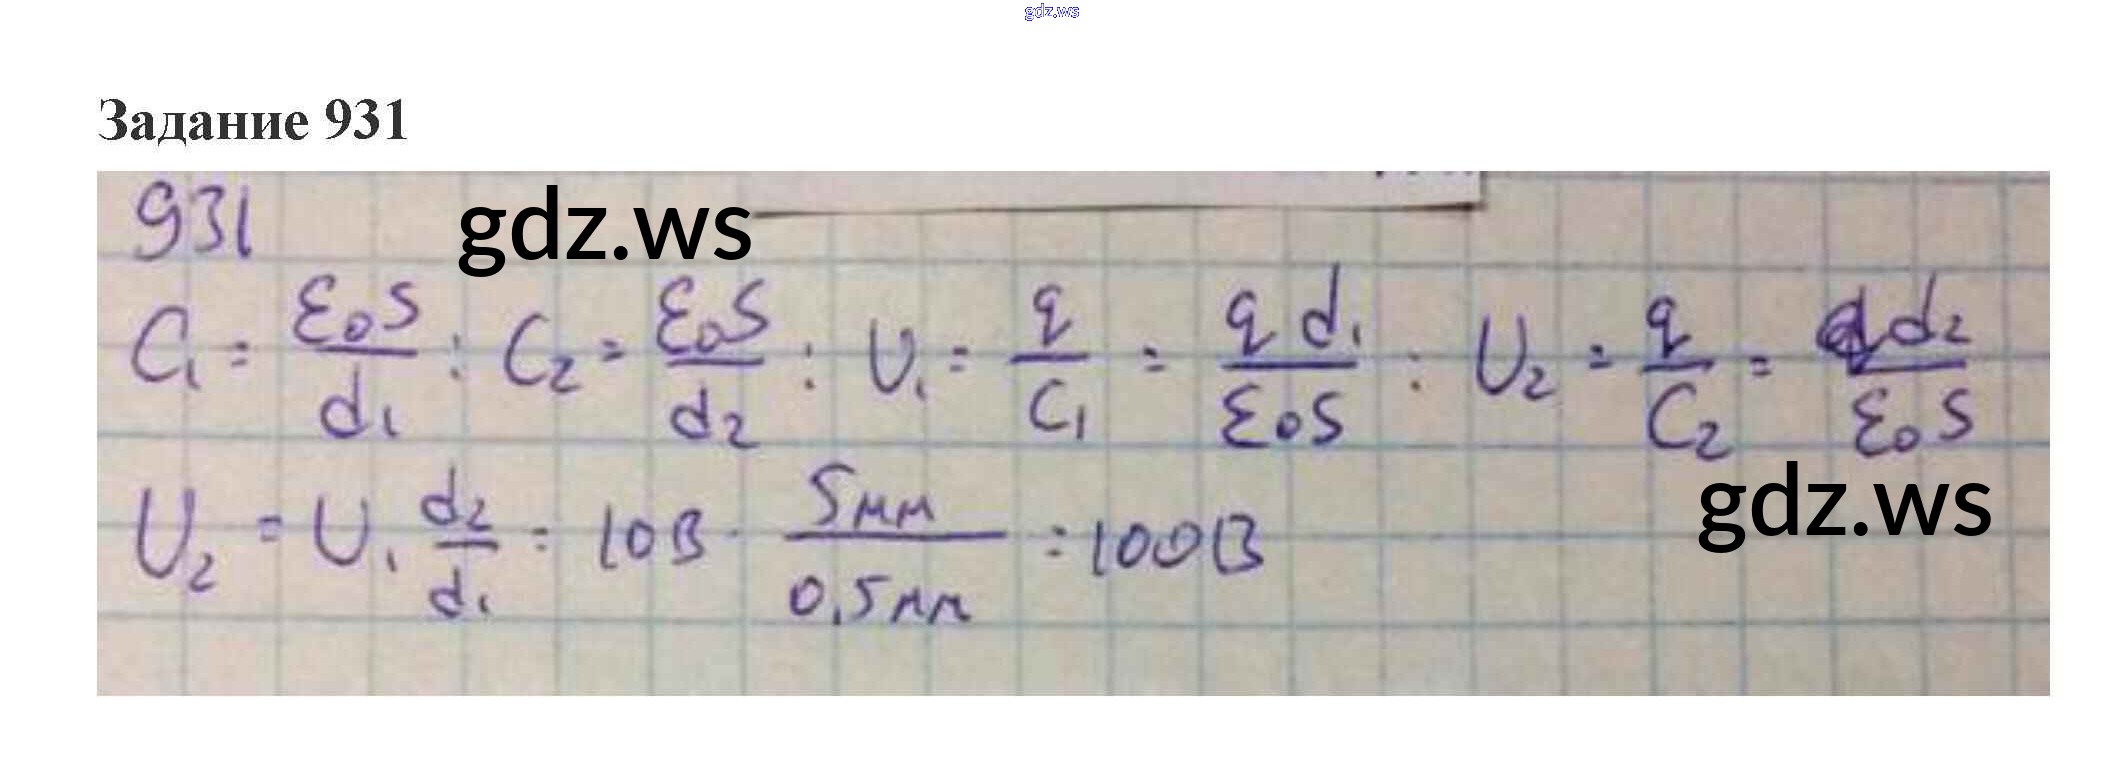 gdz.ws
Задание 931
931
gdz.ws
C₁ = ε₀S/d₁ ; C₂ = ε₀S/d₂ ; U₁ = q/C₁ = q d₁/ε₀S ; U₂ = q/C₂ = q d₂/ε₀S
gdz.ws
U₂ = U₁ d₂/d₁ = 10В · 5мм/0,5мм = 100В